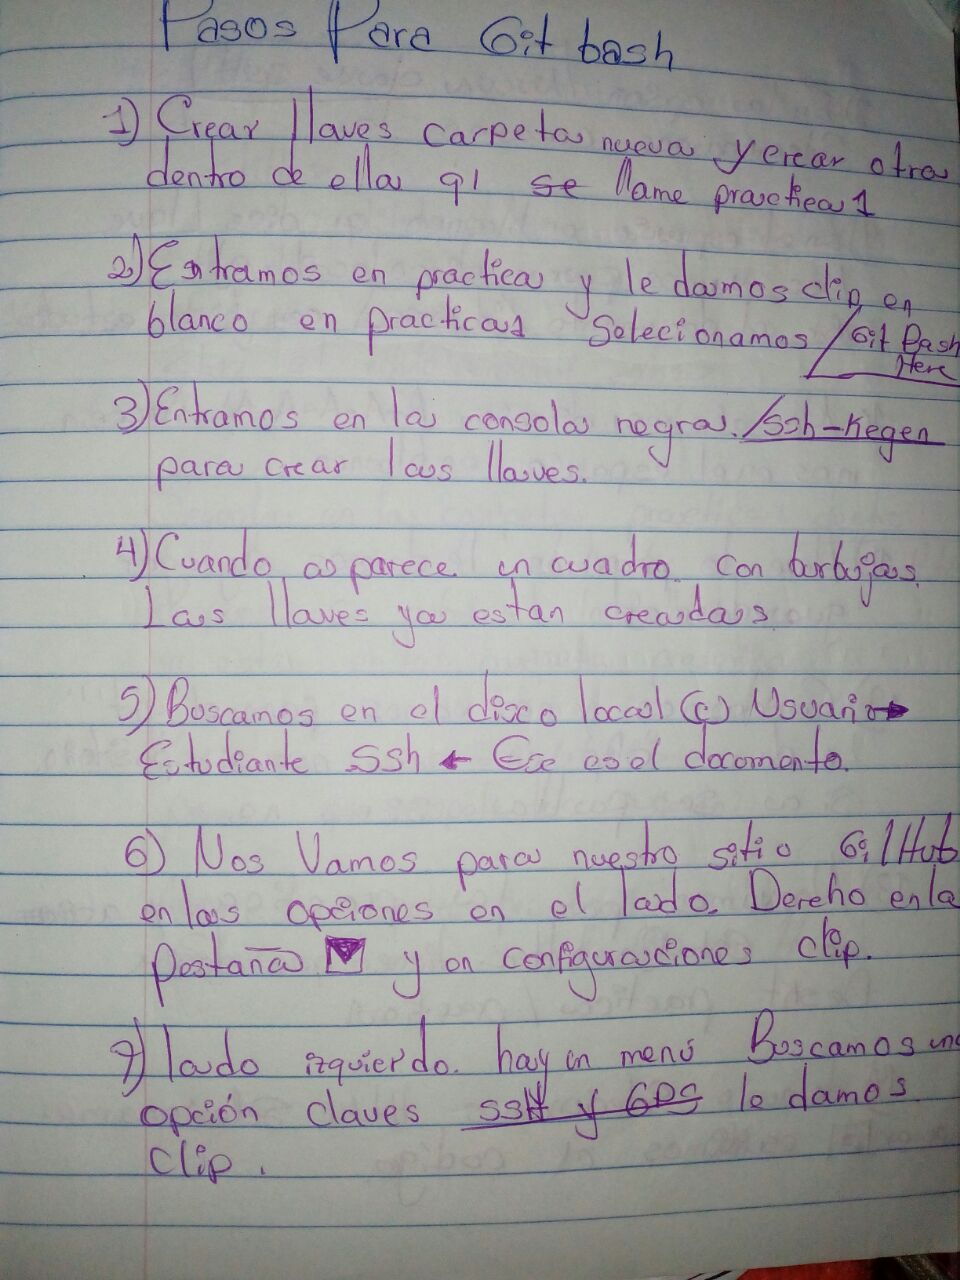 Pasos Para Git bash
1) Crear llaves carpeta nueva y crear otra
dentro de ella q| se llame practica1
2) Entramos en practica y le damos clip en
blanco en practica1 Selecionamos /Git Bash
Here
3) Entramos en la consola negra. /Ssh-Kegen
para crear las llaves.
4) Cuando aparece un cuadro con burbujas.
Las llaves ya estan creadas
5) Buscamos en el disco local (c) Usuario →
Estudiante Ssh ← Ese es el documento.
6) Nos Vamos para nuestro sitio GitHub
en las opciones en el lado. Derecho en la
Pestaña y en configuraciones clip.
7) lado izquierdo. hay un menú Buscamos una
opción claves SSH y GPG le damos
clip.